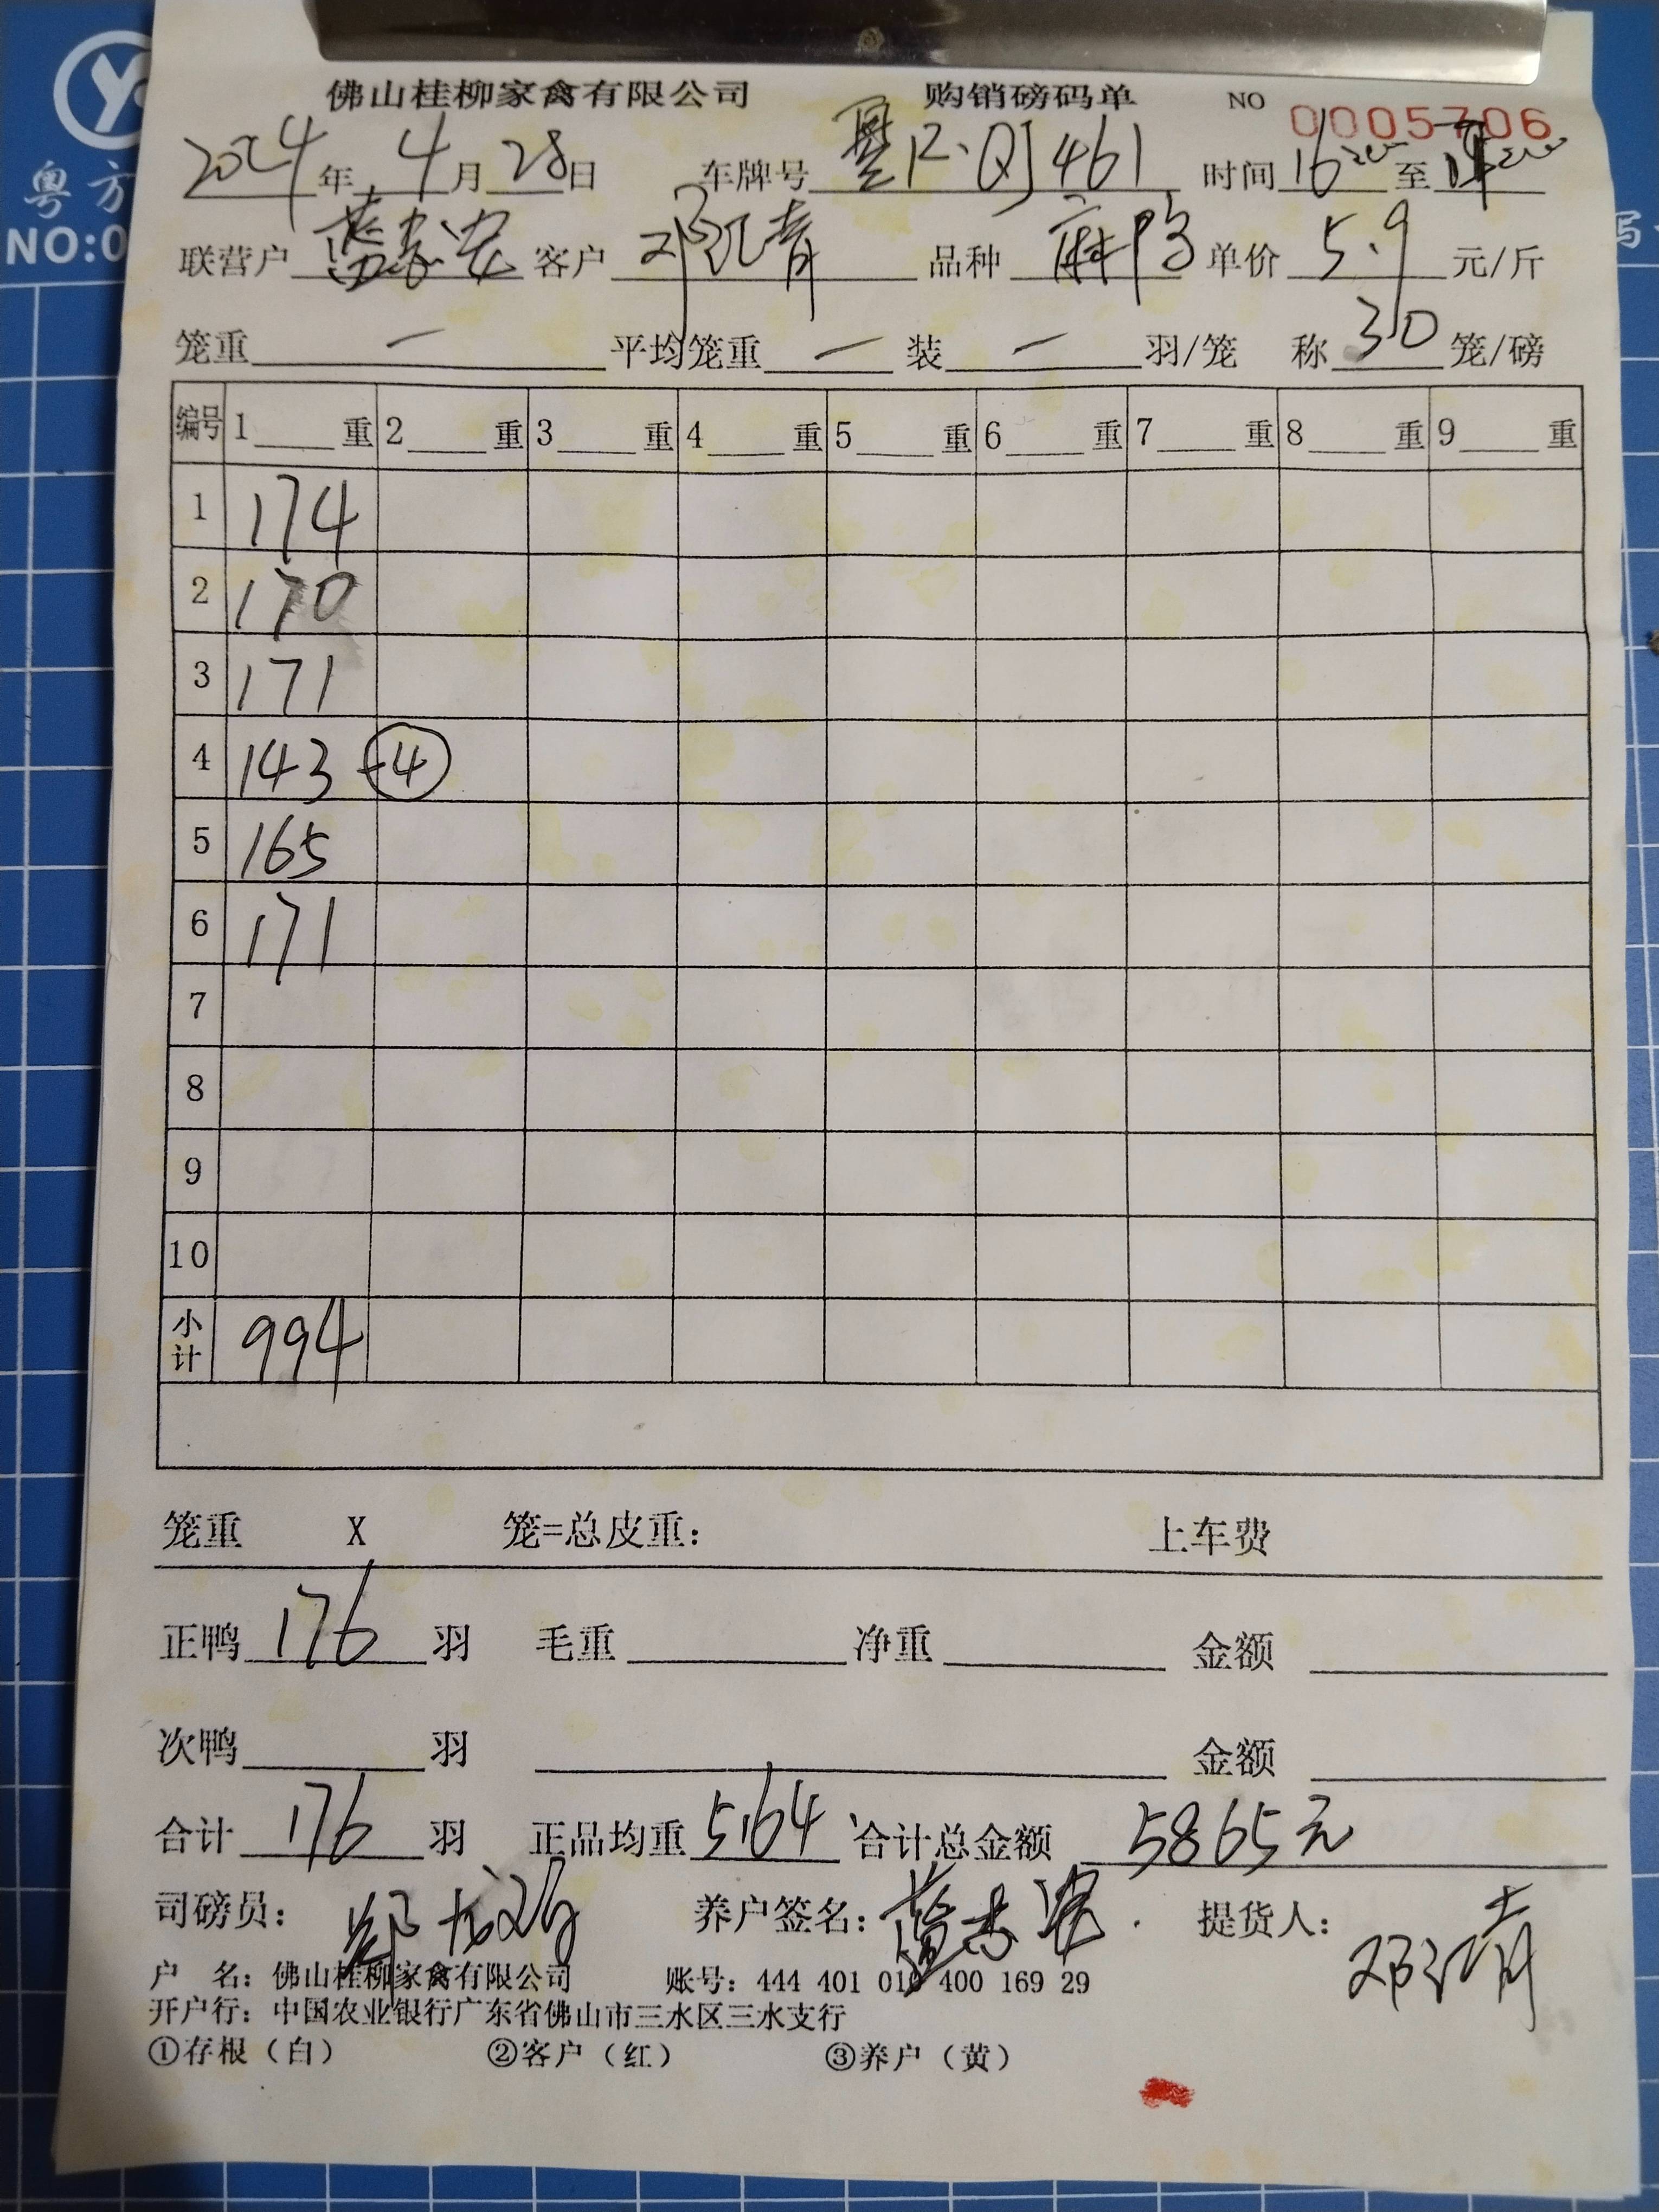 粤方
NO:0
写
佛山桂柳家禽有限公司 购销磅码单 NO 0005706
2024年 4月 28日 车牌号 R·QJ461 时间 16 至
联营户 客户 邓江青 品种 麻鸭 单价 5.9 元/斤
笼重 一 平均笼重 一 装 一 羽/笼 称 30 笼/磅
编号 1 重 2 重 3 重 4 重 5 重 6 重 7 重 8 重 9 重
1 174
2 170
3 171
4 143 -4
5 165
6 171
7
8
9
10
小计 994
笼重 X 笼=总皮重： 上车费
正鸭 176 羽 毛重 净重 金额
次鸭 羽 金额
合计 176 羽 正品均重 5.64 合计总金额 5865元
司磅员： 养户签名： 提货人： 邓江青
户 名：佛山桂柳家禽有限公司 账号：444 401 010 400 169 29
开户行：中国农业银行广东省佛山市三水区三水支行
①存根（白） ②客户（红） ③养户（黄）